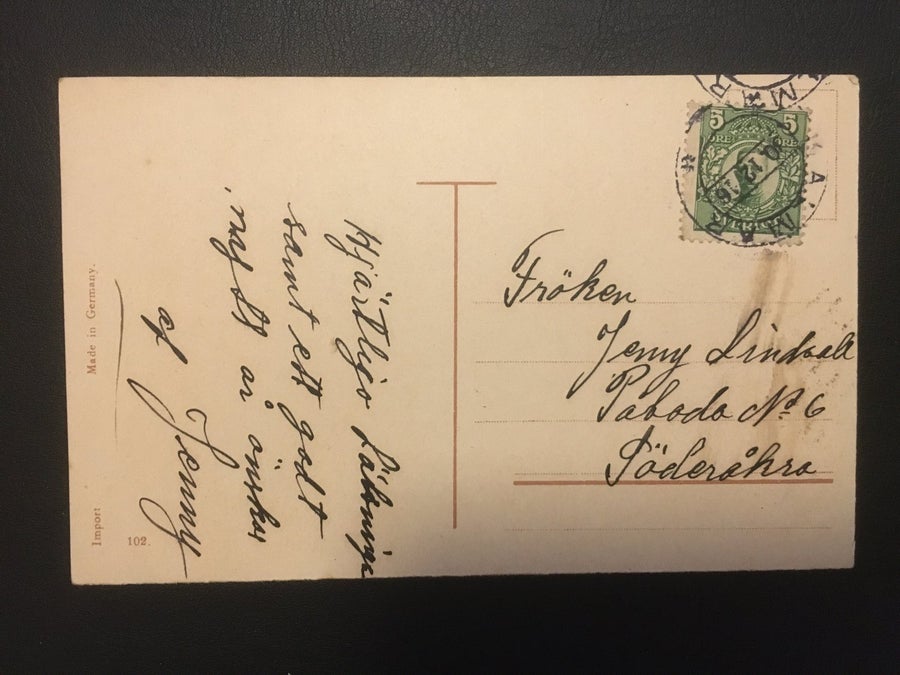 Hjärtliga hälsninga
samt ett godt
nytt år önskas
af Jenny
Fröken
Jenny Lindvall
Påboda No 6
Söderåkra
5 5
ÖRE ÖRE
KALMAR
30.12.15
Made in Germany.
Import
102.